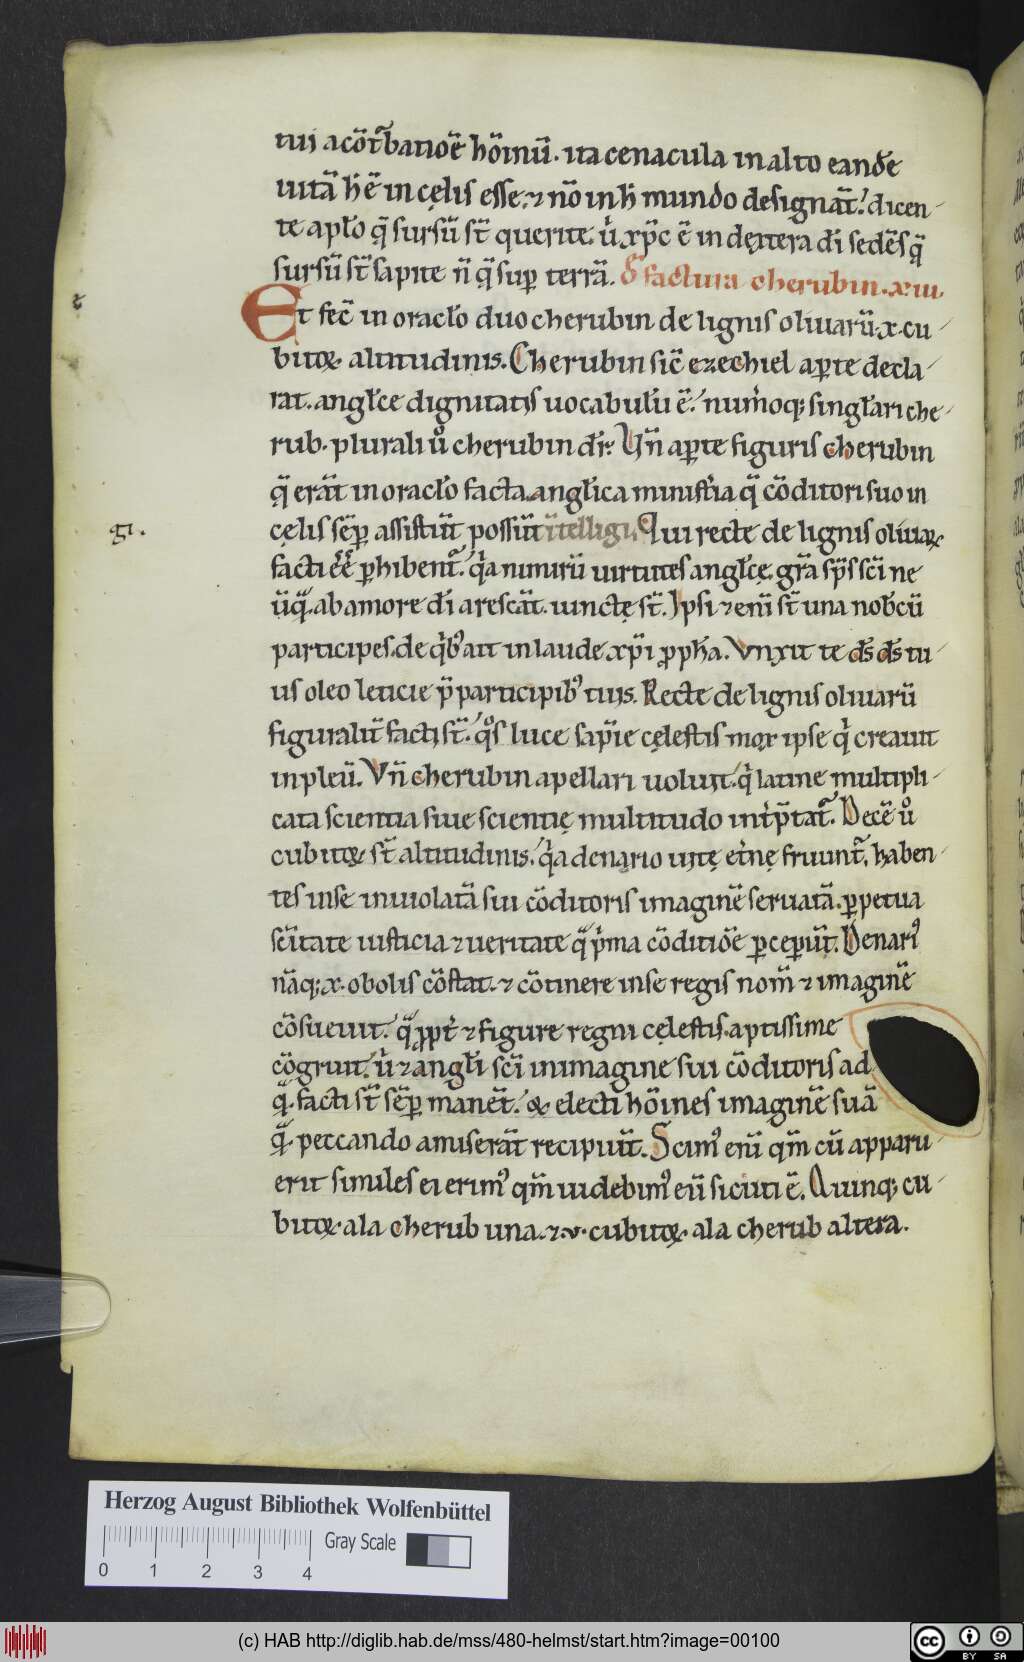 tui a cōt͛batiōē hōinū. ita cenacula in alto eandē
uitā h̄ ē in cęlis esse. ⁊ nō in h̄ mundo designāt. dicen-
te aplo q̄ sursū st̄ querite. ů xp̄c ē in dextera dī sedēs q̄
sursū st̄ sapite n̄ q̄ suꝑ terrā. factura cherubin. xiii.
Et fec̄ in oraclo duo cherubin de lignis oliuarū .x. cu
bitoꝝ altitudinis. Cherubin sic̄ ezechiel aꝑte decla-
rat. anglice dignitatis uocabulū ē. numoq; singlari che-
rub. plurali ů cherubin dr̄. Vn̄ aꝑte figuris cherubin
q̄ erāt in oraclo facta. anglica ministia q̄ cōditori suo in
cęlis sēꝑ assistūt possūt ītelligi. Qui recte de lignis oliuaꝝ
facti ēē ꝑhibent̄. qa nimirū uirtutes anglicę. grā sp̄s sc̄i ne
ūq̄ ab amore dī arescāt. iunctę st̄. Ipsi ⁊eni st̄ una nob cū
participes. de qb᷒ ait in laude xp̄i ꝓph̄a. Vnxit te ds̄ ds̄ tu-
us oleo leticie p̄ participib᷒ tuis. Recte de lignis oliuarū
figuralit̄ facti st̄. qos luce sapīe cęlestis mox ipse q creauit
inpleū. Vn̄ cherubin apellari uoluit. q latine multipli-
cata scientia siue scientię multitudo int̄p̄tat̄. Decē ů
cubitoꝝ st̄ altitudinis. qa denario uitę et̄nę fruunt̄. haben-
tes in se inuiolatā sui cōditoris imaginē seruatā. ꝑpetua
sc̄itate iusticia ⁊ ueritate q̄ p̄ma cōditiōē ꝑceperūt. Denari᷒
nāq; .x. obolis cōstat. ⁊ cōtinere in se regis nom̄ ⁊ imaginē
cōsueuit. q̄ ꝓpt̄ ⁊ figure regni cęlestis aptissime
cōgruit. ů ⁊ angli sc̄i in imagine sui cōditoris ad
q̄ facti st̄ sēꝑ manēt. & electi hōines imaginē suā
q̄ peccando amiserāt recipiūt. Scim᷒ enī qm̄ cū apparu-
erit similes ei erim᷒ qm̄ uidebim᷒ eū sicuti ē. Quinq; cu-
bitoꝝ ala cherub una. ⁊ .v. cubitoꝝ ala cherub altera.
gi.
Herzog August Bibliothek Wolfenbüttel
Gray Scale
0 1 2 3 4
(c) HAB http://diglib.hab.de/mss/480-helmst/start.htm?image=00100
cc BY SA